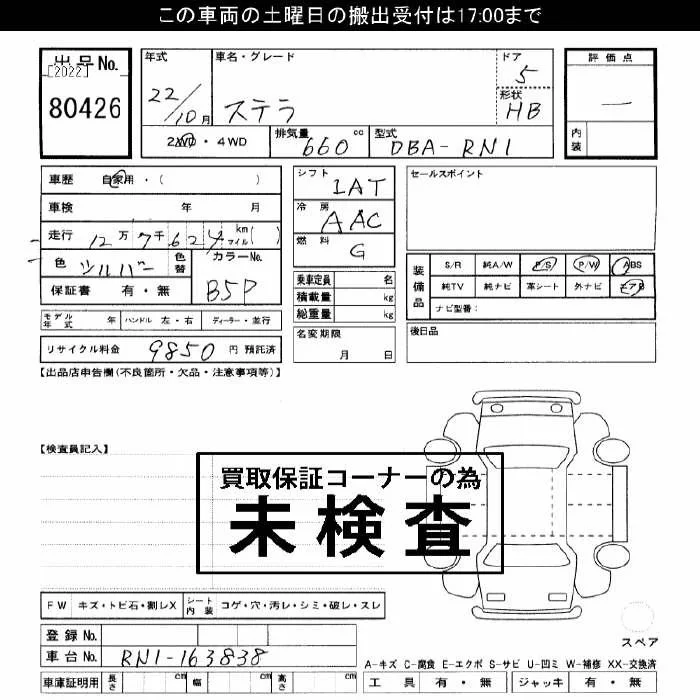 この車両の土曜日の搬出受付は17:00まで
出品No.
[2022]
80426
年式
22/10月
車名・グレード
ステラ
ドア
5
形状
HB
2WD・4WD
排気量 660 cc
型式 DBA-RN1
評価点
—
内装
車歴 自家用・( )
車検 年 月
走行 12万7千624 km マイル( )
色 シルバー 色替
カラーNo.
B5P
保証書 有・無
モデル年式 年 ハンドル 左・右 ディーラー・並行
リサイクル料金 9850 円 預託済
シフト
IAT
冷房
AAC
燃料
G
乗車定員 名
積載量 kg
総重量 kg
名変期限
月 日
セールスポイント
装備品
S/R 純A/W P/S P/W ABS
純TV 純ナビ 革シート 外ナビ エアB
ナビ型番:
後日品
【出品店申告欄(不良箇所・欠品・注意事項等)】
【検査員記入】
買取保証コーナーの為
未検査
FW キズ・トビ石・割レX
シート内装 コゲ・穴・汚レ・シミ・破レ・スレ
登録No.
車台No. RN1-163838
車庫証明用 長さ cm 幅 cm 高さ cm
スペア
A-キズ C-腐食 E-エクボ S-サビ U-凹ミ W-補修 XX-交換済
工具 有・無 ジャッキ 有・無